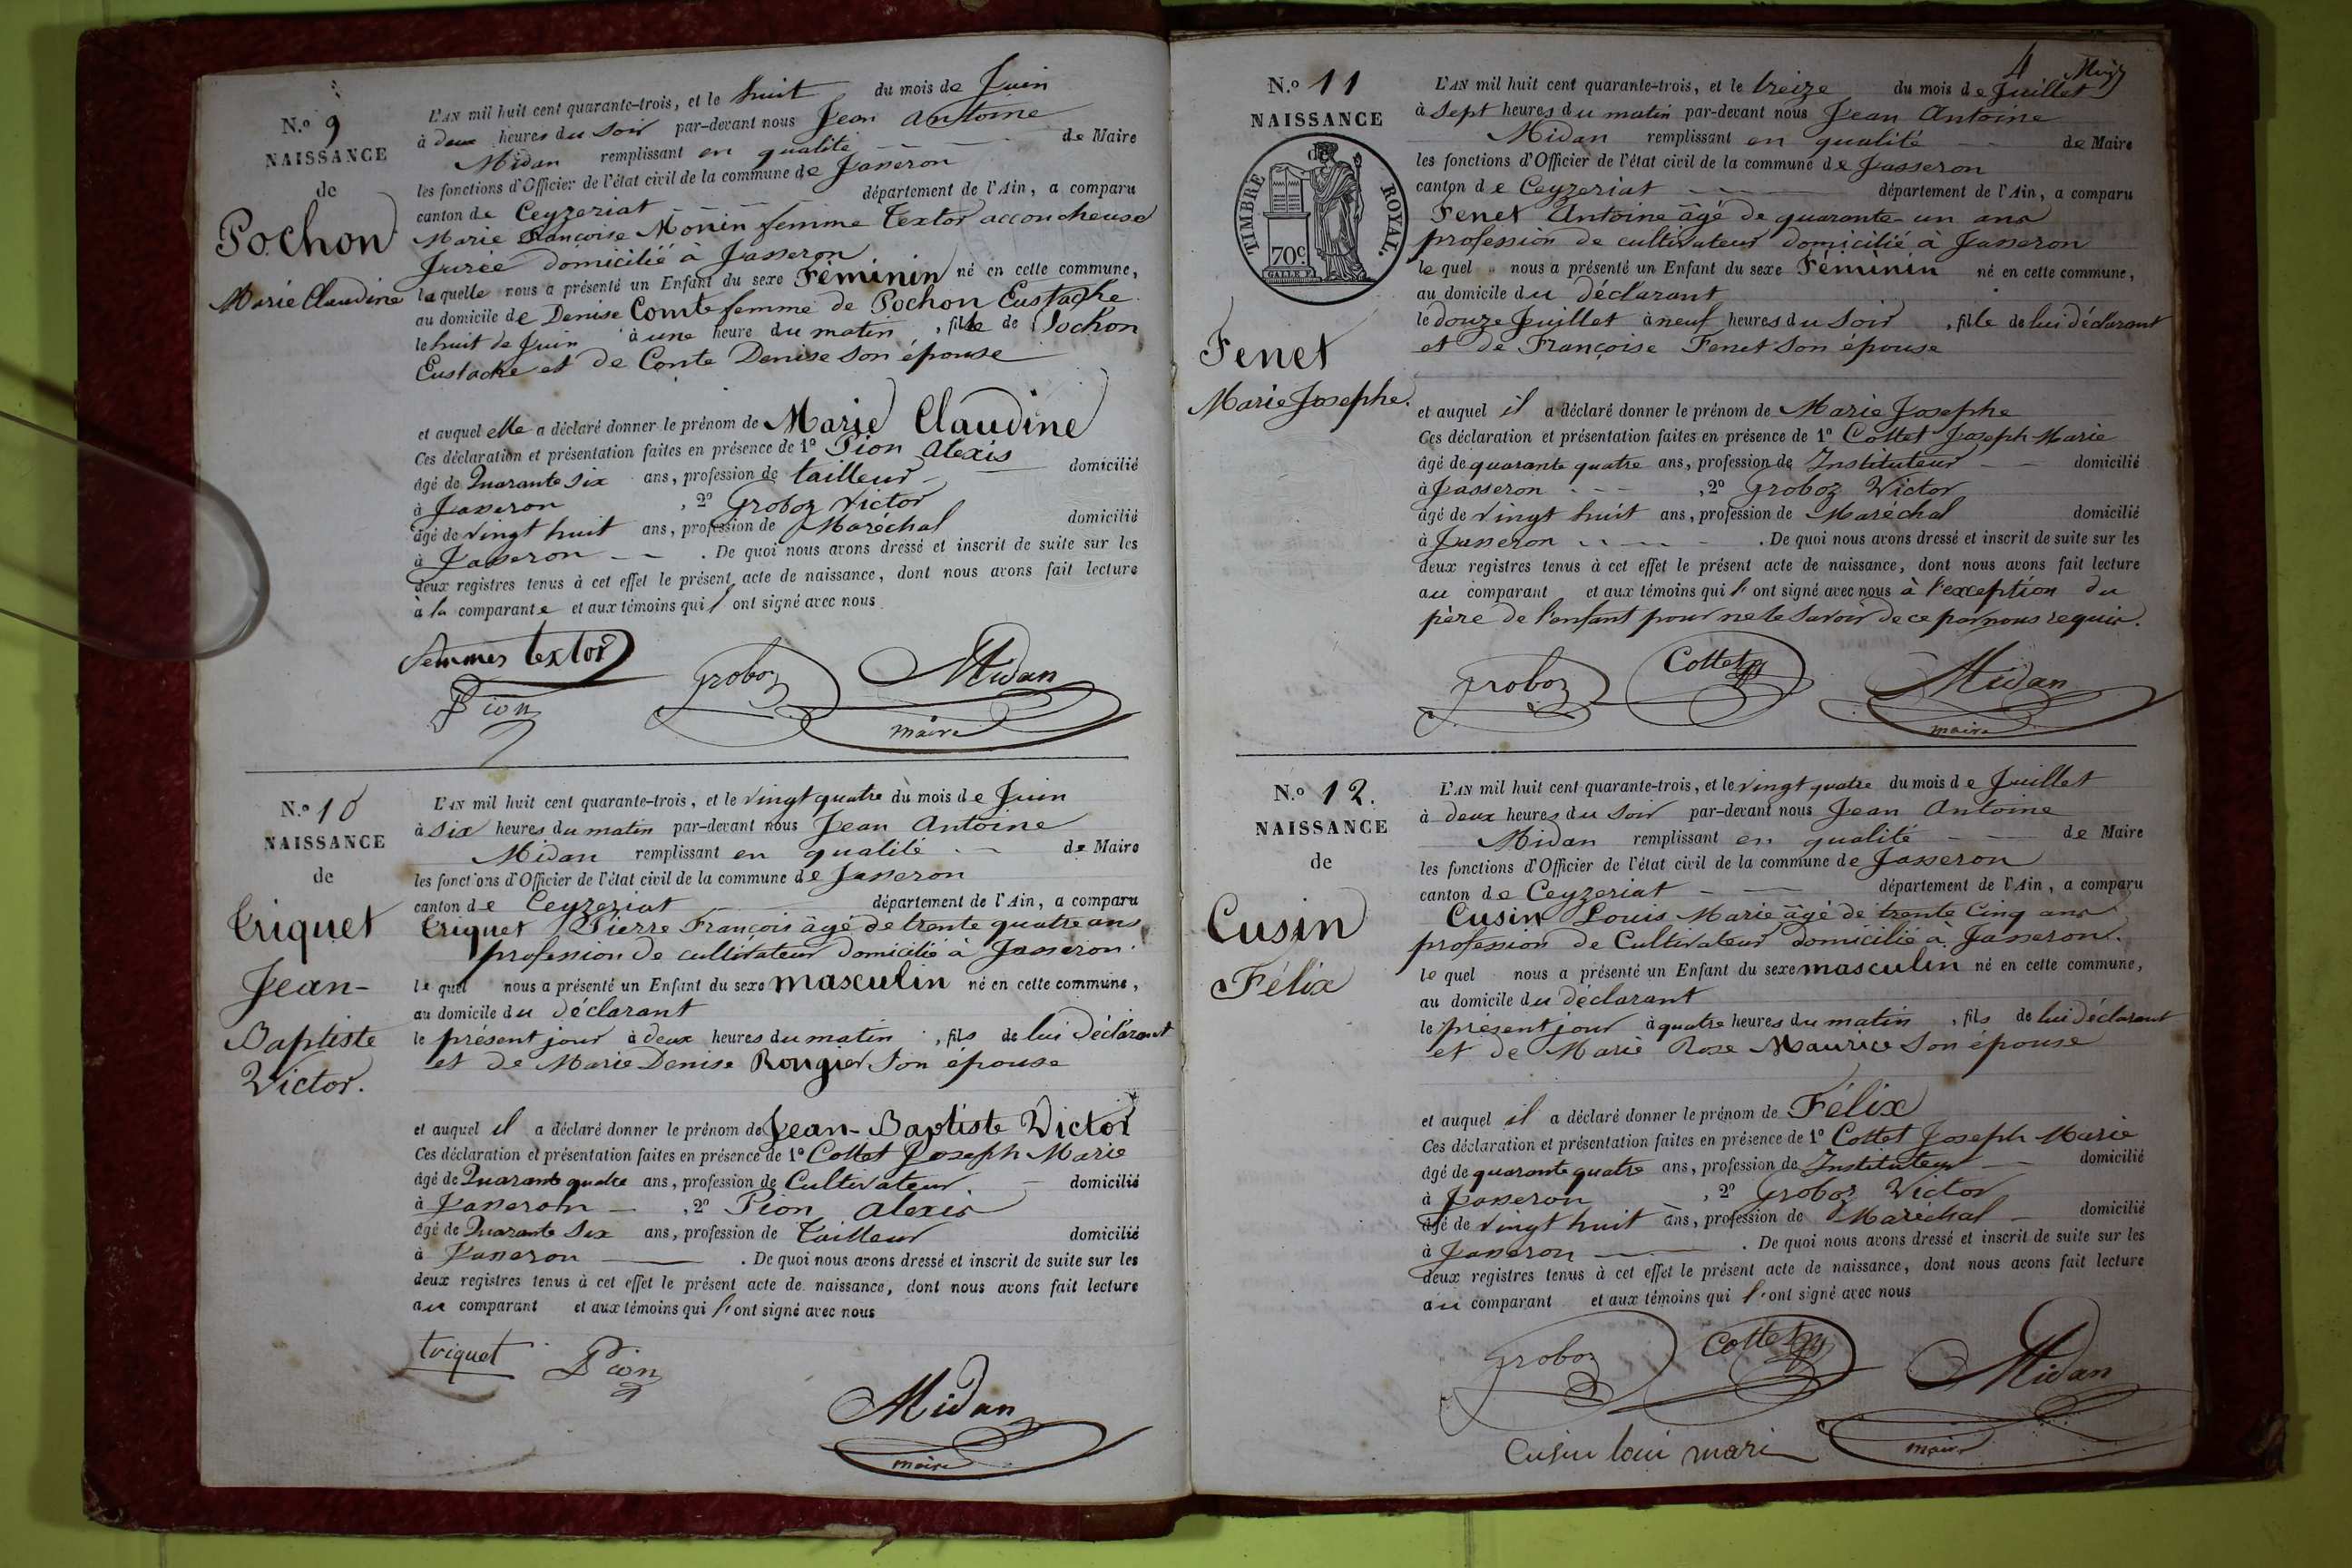 N.º 9
NAISSANCE
de
Pochon
Marie Claudine
L'AN mil huit cent quarante-trois, et le huit du mois de Juin
à deux heures du soir par-devant nous Jean Antoine
Midan remplissant en qualité de Maire
les fonctions d'Officier de l'état civil de la commune de Jasseron
canton de Ceyzeriat département de l'Ain, a comparu
Marie Françoise Monin femme Textor accoucheuse
Jurée domicilié à Jasseron
laquelle nous a présenté un Enfant du sexe Féminin né en cette commune,
au domicile de Denise Comte femme de Pochon Eustache
le huit de Juin à une heure du matin, fille de Pochon
Eustache et de Conte Denise son épouse
et auquel elle a déclaré donner le prénom de Marie Claudine
Ces déclaration et présentation faites en présence de 1º Pion Alexis
âgé de Quarante six ans, profession de tailleur domicilié
à Jasseron, 2º Groboz Victor
âgé de vingt huit ans, profession de Maréchal domicilié
à Jasseron. De quoi nous avons dressé et inscrit de suite sur les
deux registres tenus à cet effet le présent acte de naissance, dont nous avons fait lecture
à la comparante et aux témoins qui l'ont signé avec nous
femmes textor
Groboz
Midan
Pion
maire
N.º 10
NAISSANCE
de
Triquet
Jean-
Baptiste
Victor.
L'AN mil huit cent quarante-trois, et le vingt quatre du mois de Juin
à six heures du matin par-devant nous Jean Antoine
Midan remplissant en qualité de Maire
les fonctions d'Officier de l'état civil de la commune de Jasseron
canton de Ceyzeriat département de l'Ain, a comparu
Triquet Pierre François âgé de trente quatre ans
profession de cultivateur domicilié à Jasseron.
lequel nous a présenté un Enfant du sexe masculin né en cette commune,
au domicile du déclarant
le présent jour à deux heures du matin, fils de lui déclarant
et de Marie Denise Rougier son épouse
et auquel il a déclaré donner le prénom de Jean-Baptiste Victor
Ces déclaration et présentation faites en présence de 1º Cottet Joseph Marie
âgé de Quarante quatre ans, profession de Cultivateur. domicilié
à Jasseron, 2º Pion Alexis
âgé de Quarante Six ans, profession de Tailleur domicilié
à Jasseron. De quoi nous avons dressé et inscrit de suite sur les
deux registres tenus à cet effet le présent acte de naissance, dont nous avons fait lecture
au comparant et aux témoins qui l'ont signé avec nous
triquet
Pion
Midan
maire
4
N.º 11
NAISSANCE
de
TIMBRE ROYAL.
70c.
Fenet
Marie Josephe.
L'AN mil huit cent quarante-trois, et le treize du mois de Juillet
à sept heures du matin par-devant nous Jean Antoine
Midan remplissant en qualité de Maire
les fonctions d'Officier de l'état civil de la commune de Jasseron
canton de Ceyzeriat département de l'Ain, a comparu
Fenet Antoine âgé de quarante-un ans
profession de cultivateur domicilié à Jasseron
lequel nous a présenté un Enfant du sexe Féminin né en cette commune,
au domicile du déclarant
le douze Juillet à neuf heures du soir, fille de lui déclarant
et de Françoise Fenet son épouse
et auquel il a déclaré donner le prénom de Marie Josephe
Ces déclaration et présentation faites en présence de 1º Cottet Joseph-Marie
âgé de quarante quatre ans, profession de Instituteur domicilié
à Jasseron, 2º Groboz Victor
âgé de vingt huit ans, profession de Maréchal domicilié
à Jasseron. De quoi nous avons dressé et inscrit de suite sur les
deux registres tenus à cet effet le présent acte de naissance, dont nous avons fait lecture
au comparant et aux témoins qui l'ont signé avec nous à l'exception du
père de l'enfant pour ne le savoir de ce par nous requis.
Groboz
Cottet
Midan
maire
N.º 12.
NAISSANCE
de
Cusin
Félix
L'AN mil huit cent quarante-trois, et le vingt quatre du mois de Juillet
à deux heures du soir par-devant nous Jean Antoine
Midan remplissant en qualité de Maire
les fonctions d'Officier de l'état civil de la commune de Jasseron
canton de Ceyzeriat département de l'Ain, a comparu
Cusin Louis Marie âgé de trente Cinq ans
profession de Cultivateur domicilié à Jasseron.
lequel nous a présenté un Enfant du sexe masculin né en cette commune,
au domicile du déclarant
le présent jour à quatre heures du matin, fils de lui déclarant
et de Marie Rose Maurice son épouse
et auquel il a déclaré donner le prénom de Félix
Ces déclaration et présentation faites en présence de 1º Cottet Joseph Marie
âgé de quarante quatre ans, profession de Instituteur domicilié
à Jasseron, 2º Groboz Victor
âgé de vingt huit ans, profession de Maréchal domicilié
à Jasseron. De quoi nous avons dressé et inscrit de suite sur les
deux registres tenus à cet effet le présent acte de naissance, dont nous avons fait lecture
au comparant et aux témoins qui l'ont signé avec nous
Groboz
Cottet
Midan
Cusin loui mari
maire